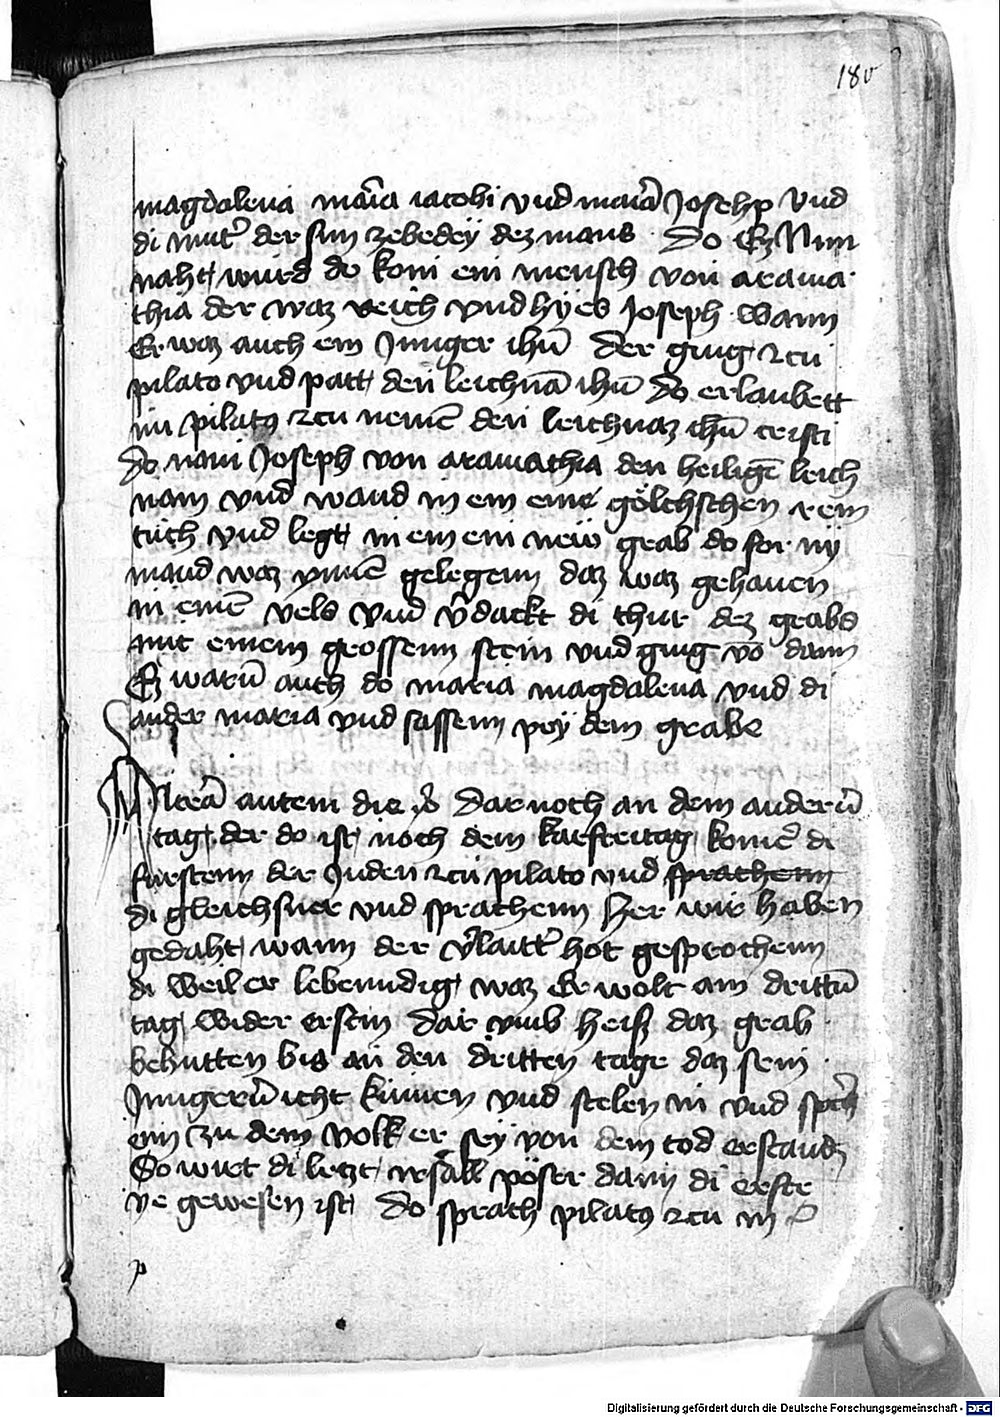 180
magdalena maria iacobi vnd maria Josehp vnd
di muter der sun zebedey dez mans Do Ez Nun
naht wurd do kom ein mensch von arama
thia der waz reich vnd hyes Joseph Wann
Er waz auch ein Junger ihū der ging zcu
pilato vnd patt den leichnā ihū do erlaubett
im pilatꝯ zcu nemē den leichnaz ihū cristi
do nam Joseph von aramathia den heiligē leich
nam vnd wand in ein eine gölchschen rein
tuch vnd legt in ein ein new grab do for ny
mand waz ymmē gelegenn daz waz gehauen
in einē vels vnd v̄dackt di thur dez grabs
mit einem grossenn stein vnd ging vō dann
Ez warū auch do maria magdalena vnd di
ander maria vnd sassenn pey dem grabe
Altera autem die Dar noch an dem anderū
tag der do ist noch dem karfreitag komē di
fursten der Juden zcu pilato vnd sprachenn
di gleichsner vnd sprachenn Her wir haben
gedaht wann der v̄laitt hot gesprochenn
di weil er lebenndig waz Er wolt am drittū
tag wider ersten Dar vmb heiß daz grab
behutten bis an den dritten tage daz sein
Jungerū icht kumen vnd stelen in vnd spch
enn zu dem volk er sey von dem tod erstandē
So wirt di letzt irsall pöser dann di erste
ye gewesen ist Do sprach pilatꝯ zcu in
Digitalisierung gefördert durch die Deutsche Forschungsgemeinschaft - DFG